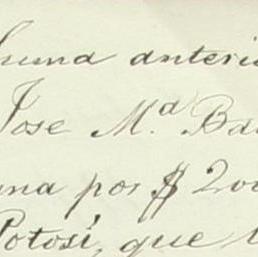 anteri
Jose M.ª Ba
una por $ 200
Potosí, que